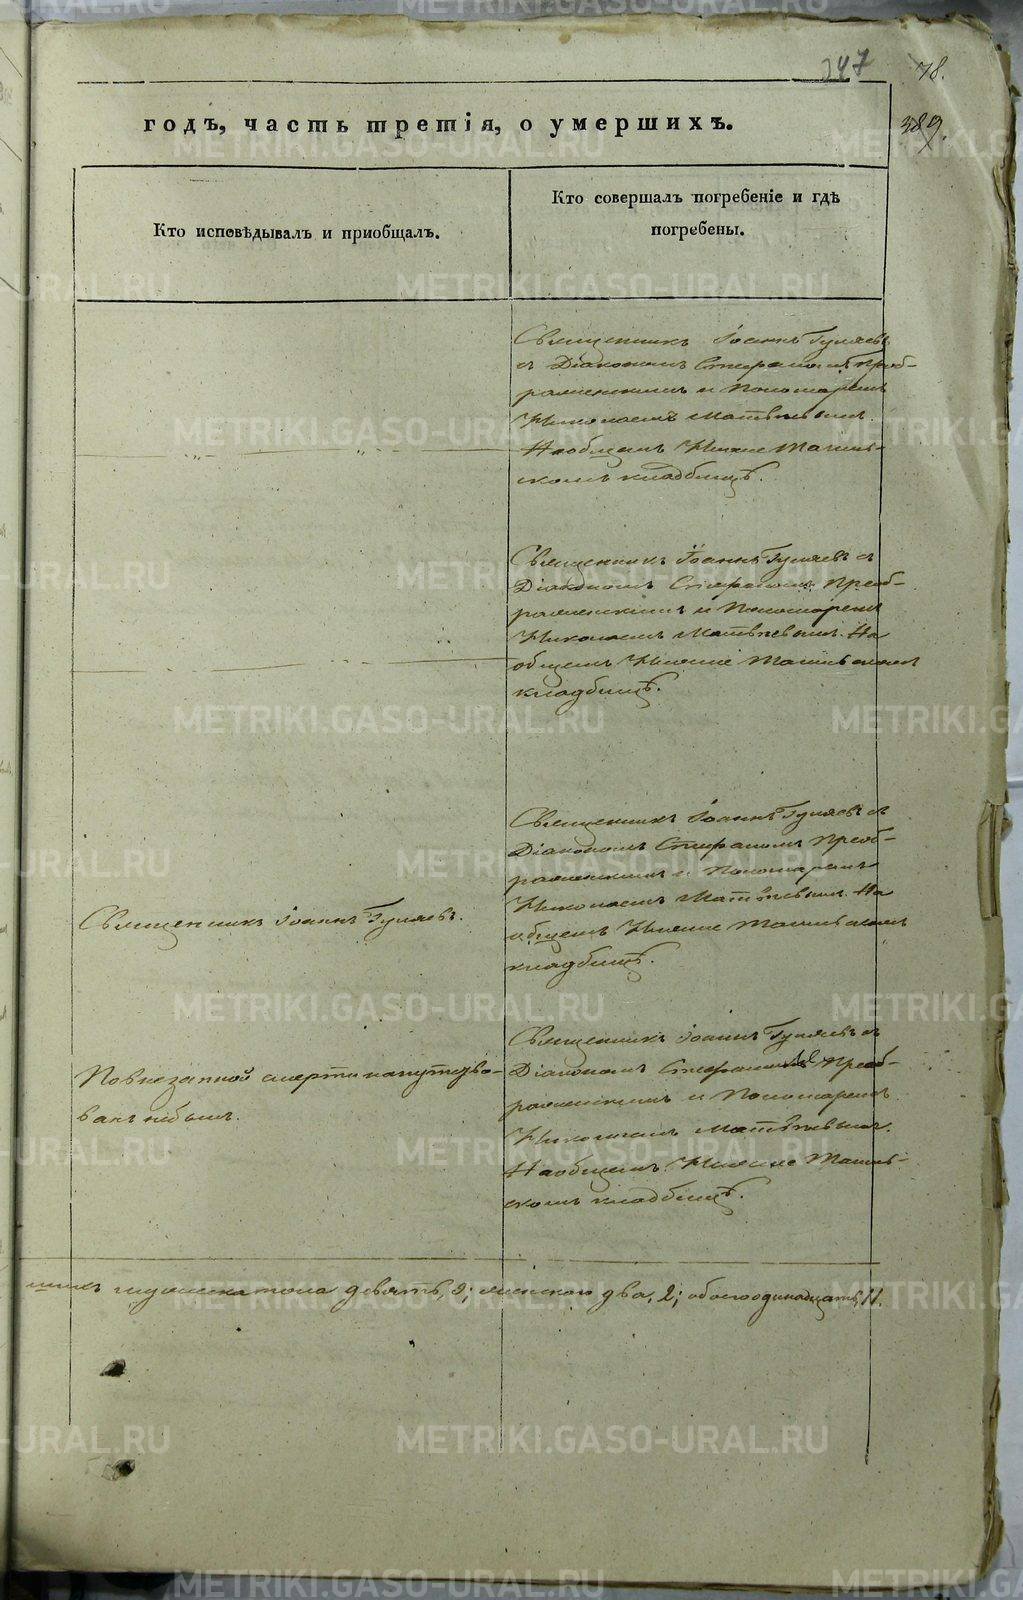 247
78.
389.
годъ, часть третія, о умершихъ.
Кто исповѣдывалъ и приобщалъ.
Кто совершалъ погребеніе и гдѣ
погребены.
Священникъ Іоаннъ Гуляевъ
съ Діакономъ Стефаномъ Преоб-
раженскимъ и Пономаремъ
Николаемъ Матвѣевымъ.
На общемъ Нижне Тагиль-
скомъ кладбищѣ.
Священникъ Іоаннъ Гуляевъ съ
Діакономъ Стефаномъ Преоб-
раженскимъ и Пономаремъ
Николаемъ Матвѣевымъ. На
общемъ Нижне Тагильскомъ
кладбищѣ.
Священникъ Іоаннъ Гуляевъ.
Священникъ Іоаннъ Гуляевъ съ
Діакономъ Стефаномъ Преоб-
раженскимъ и Пономаремъ
Николаемъ Матвѣевымъ. На
общемъ Нижне Тагильскомъ
кладбищѣ.
По внезапной смерти напутство-
ванъ небылъ.
Священникъ Іоаннъ Гуляевъ съ
Діакономъ Стефаномъ Преоб-
раженскимъ и Пономаремъ
Николаемъ Матвѣевымъ.
На общемъ Нижне Тагиль-
скомъ кладбищѣ.
мужеска пола девять, 9; женскаго два, 2; обоего одинадцать, 11.
METRIKI.GASO-URAL.RU